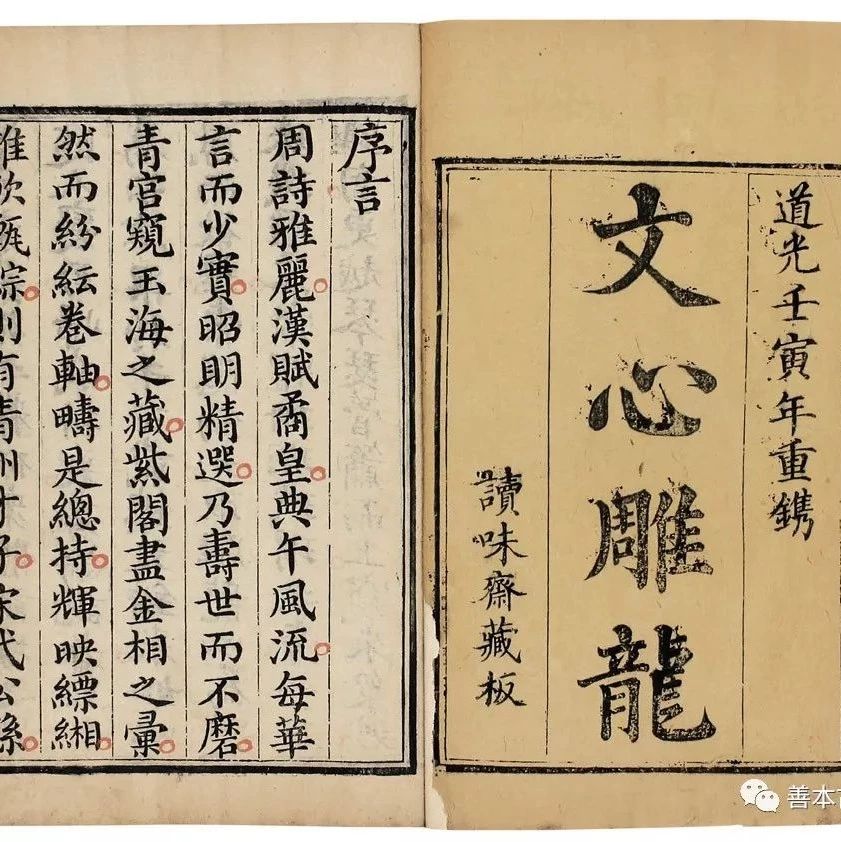 道光壬寅年重鎸
文心雕龍
讀味齋藏板
序言
周詩雅麗漢賦矞皇典午風流每華
言而少實昭明精選乃壽世而不磨
青宮窺玉海之藏紫閣盡金相之彙
然而紛紜卷軸疇是總持輝映縹緗
甄綜則有青州才子宋代公
善本